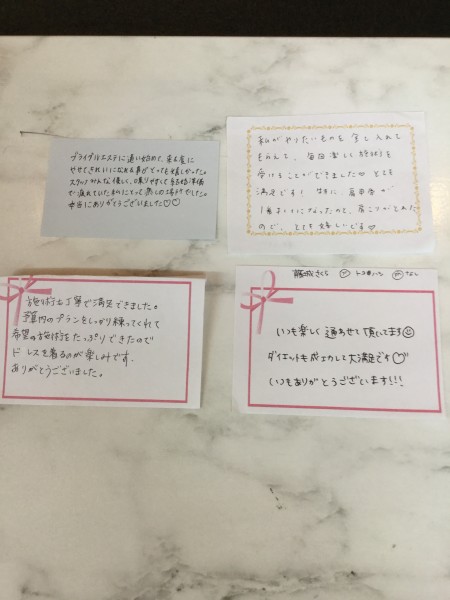 ブライダルエステに通い始めて、
やせてきれいになれる事がとっても嬉しかった。
スタッフみんな優しく、喋りやすくて結婚準備
で疲れていた私にとって癒しの場所でした。
本当にありがとうございました♡♡
私がやりたいものを全て入れて
もらえて、毎回楽しく施術を
受けることができました♡ とても
満足です! 特に 肩甲骨が
1番キレイになったので、肩こりがとれた
ので、とても嬉しいです♡
施術も丁寧で満足できました。
予算内のプランをしっかり練ってくれて
希望の施術をたっぷりできたので
ドレスを着るのが楽しみです。
ありがとうございました。
いつも楽しく通わせて頂いてます☺
ダイエットも成功して大満足です♡
いつもありがとうございます!!!